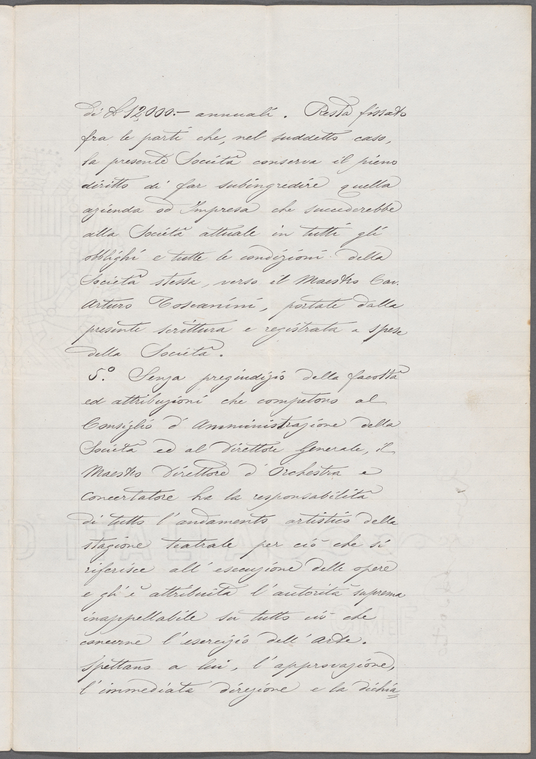 di £ 12,000.- annuali. Resta fissato
fra le parti che, nel suddetto caso,
la presente Società conserva il pieno
diritto di far subingredire quella
azienda od Impresa che succederebbe
alla Società attuale in tutti gli
obblighi e tutte le condizioni della
Società stessa, verso il Maestro Cav.
Arturo Toscanini, portate dalla
presente scrittura e registrata a spese
della Società.
5.° Senza pregiudizio della facoltà
ed attribuzioni che competono al
Consiglio d'Amministrazione della
Società ed al Direttore Generale, il
Maestro Direttore d'Orchestra e
Concertatore ha la responsabilità
di tutto l'andamento artistico della
stagione teatrale per ciò che si
riferisce all'esecuzione delle opere
e gli è attribuita l'autorità suprema
inappellabile su tutto ciò che
concerne l'esercizio dell'Arte.
Spettano a lui, l'approvazione,
l'immediata direzione e la dichia=